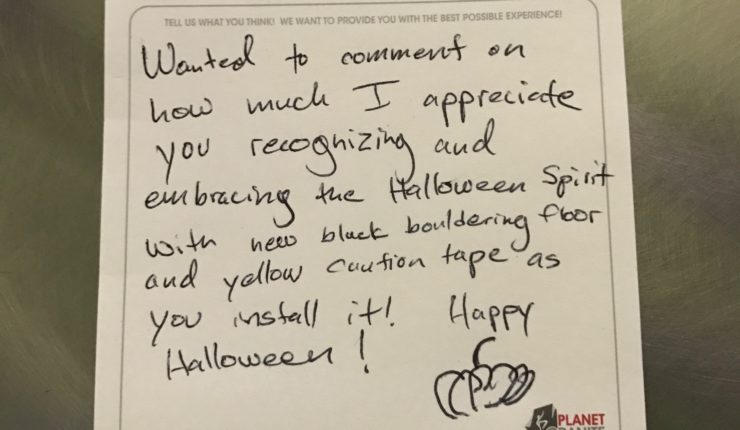 TELL US WHAT YOU THINK! WE WANT TO PROVIDE YOU WITH THE BEST POSSIBLE EXPERIENCE!
Wanted to comment on
how much I appreciate
you recognizing and
embracing the Halloween Spirit
with new black bouldering floor
and yellow caution tape as
you install it! Happy
Halloween!
PLANET